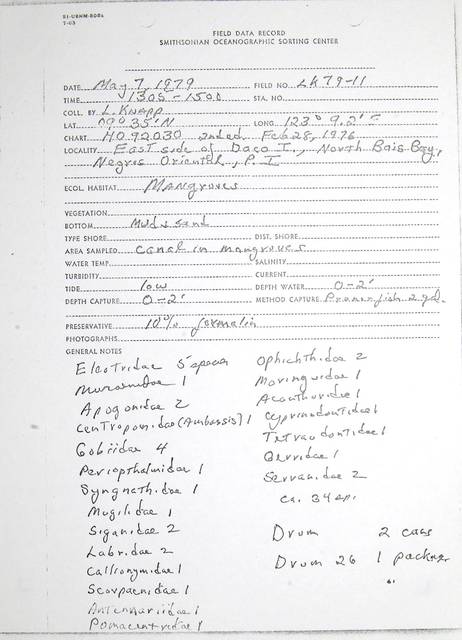 SI-USNM-808a
7-63
FIELD DATA RECORD
SMITHSONIAN OCEANOGRAPHIC SORTING CENTER
DATE May 7, 1979 FIELD NO. LK 79-11
TIME 1305-1500 STA. NO.
COLL. BY L. Knapp
LAT. 09° 35' N LONG. 123° 9.2' E
CHART HO 92030 2nd ed. Feb 28, 1976
LOCALITY East side of Daco I., North Bais Bay,
Negros Oriental, P. I.
ECOL. HABITAT Mangroves
VEGETATION
BOTTOM Mud & sand
TYPE SHORE DIST. SHORE
AREA SAMPLED canal in mangroves
WATER TEMP. SALINITY
TURBIDITY CURRENT
TIDE low DEPTH WATER 0-2'
DEPTH CAPTURE 0-2' METHOD CAPTURE Pronoxfish 2 gal.
PRESERVATIVE 10% formalin
PHOTOGRAPHS
GENERAL NOTES
Eleotridae 5 species
Muraenidae 1
Apogonidae 2
Centropomidae (Ambassis) 1
Gobiidae 4
Periopthalmidae 1
Syngnathidae 1
Mugilidae 1
Siganidae 2
Labridae 2
Callionymidae 1
Scorpaenidae 1
Antennariidae 1
Pomacentridae 1
Ophichthidae 2
Moringuidae 1
Acanthuridae 1
Cyprinodontidae 1
Tetraodontidae 1
Gerridae 1
Serranidae 2
ca. 34 sp.
Drum 2 cans
Drum 26 1 packner